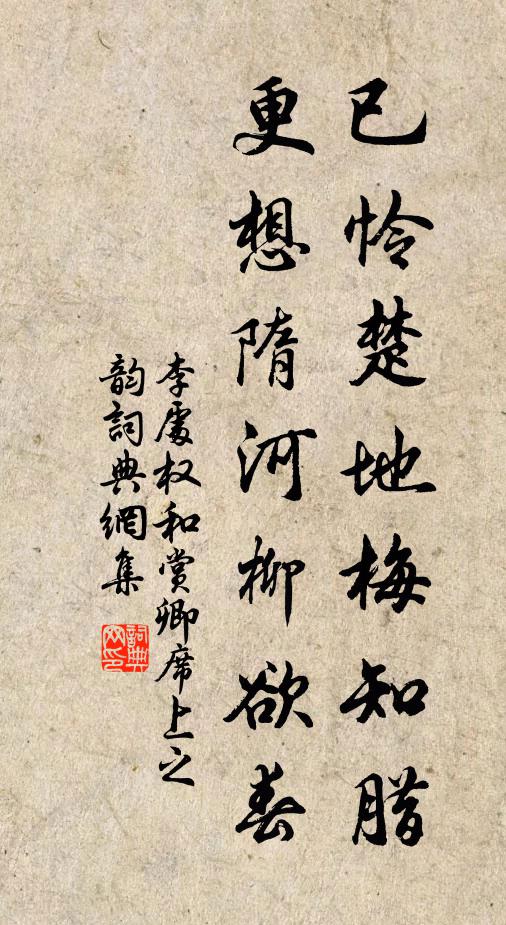 已怜楚地梅知腊
更想隋河柳欲春
李處权和赏卿席上之
韵詞典網集
詞典
网印